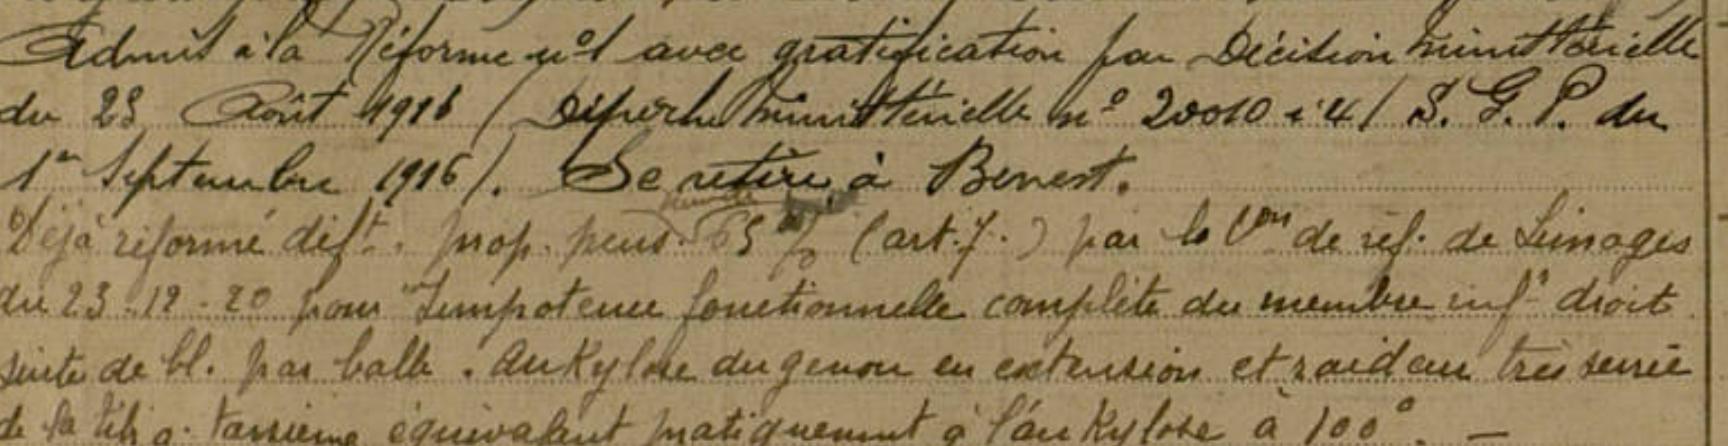 Admis à la Réforme n°1 avec gratification par Décision ministérielle
du 23 Août 1916 (Dépêche ministérielle n° 20010 i 4/ S. G. P. du
1er Septembre 1916). Se retire à Benest.
Déjà réformé déft. prop. pens. 65 % (art. 7.) par la Con de réf. de Limoges
du 23.12.20 pour "Impotence fonctionnelle complète du membre infr droit
suite de bl. par balle. Ankylose du genou en extension et raideur très serrée
de la tibio-tarsienne équivalent pratiquement à l'ankylose à 100°. —